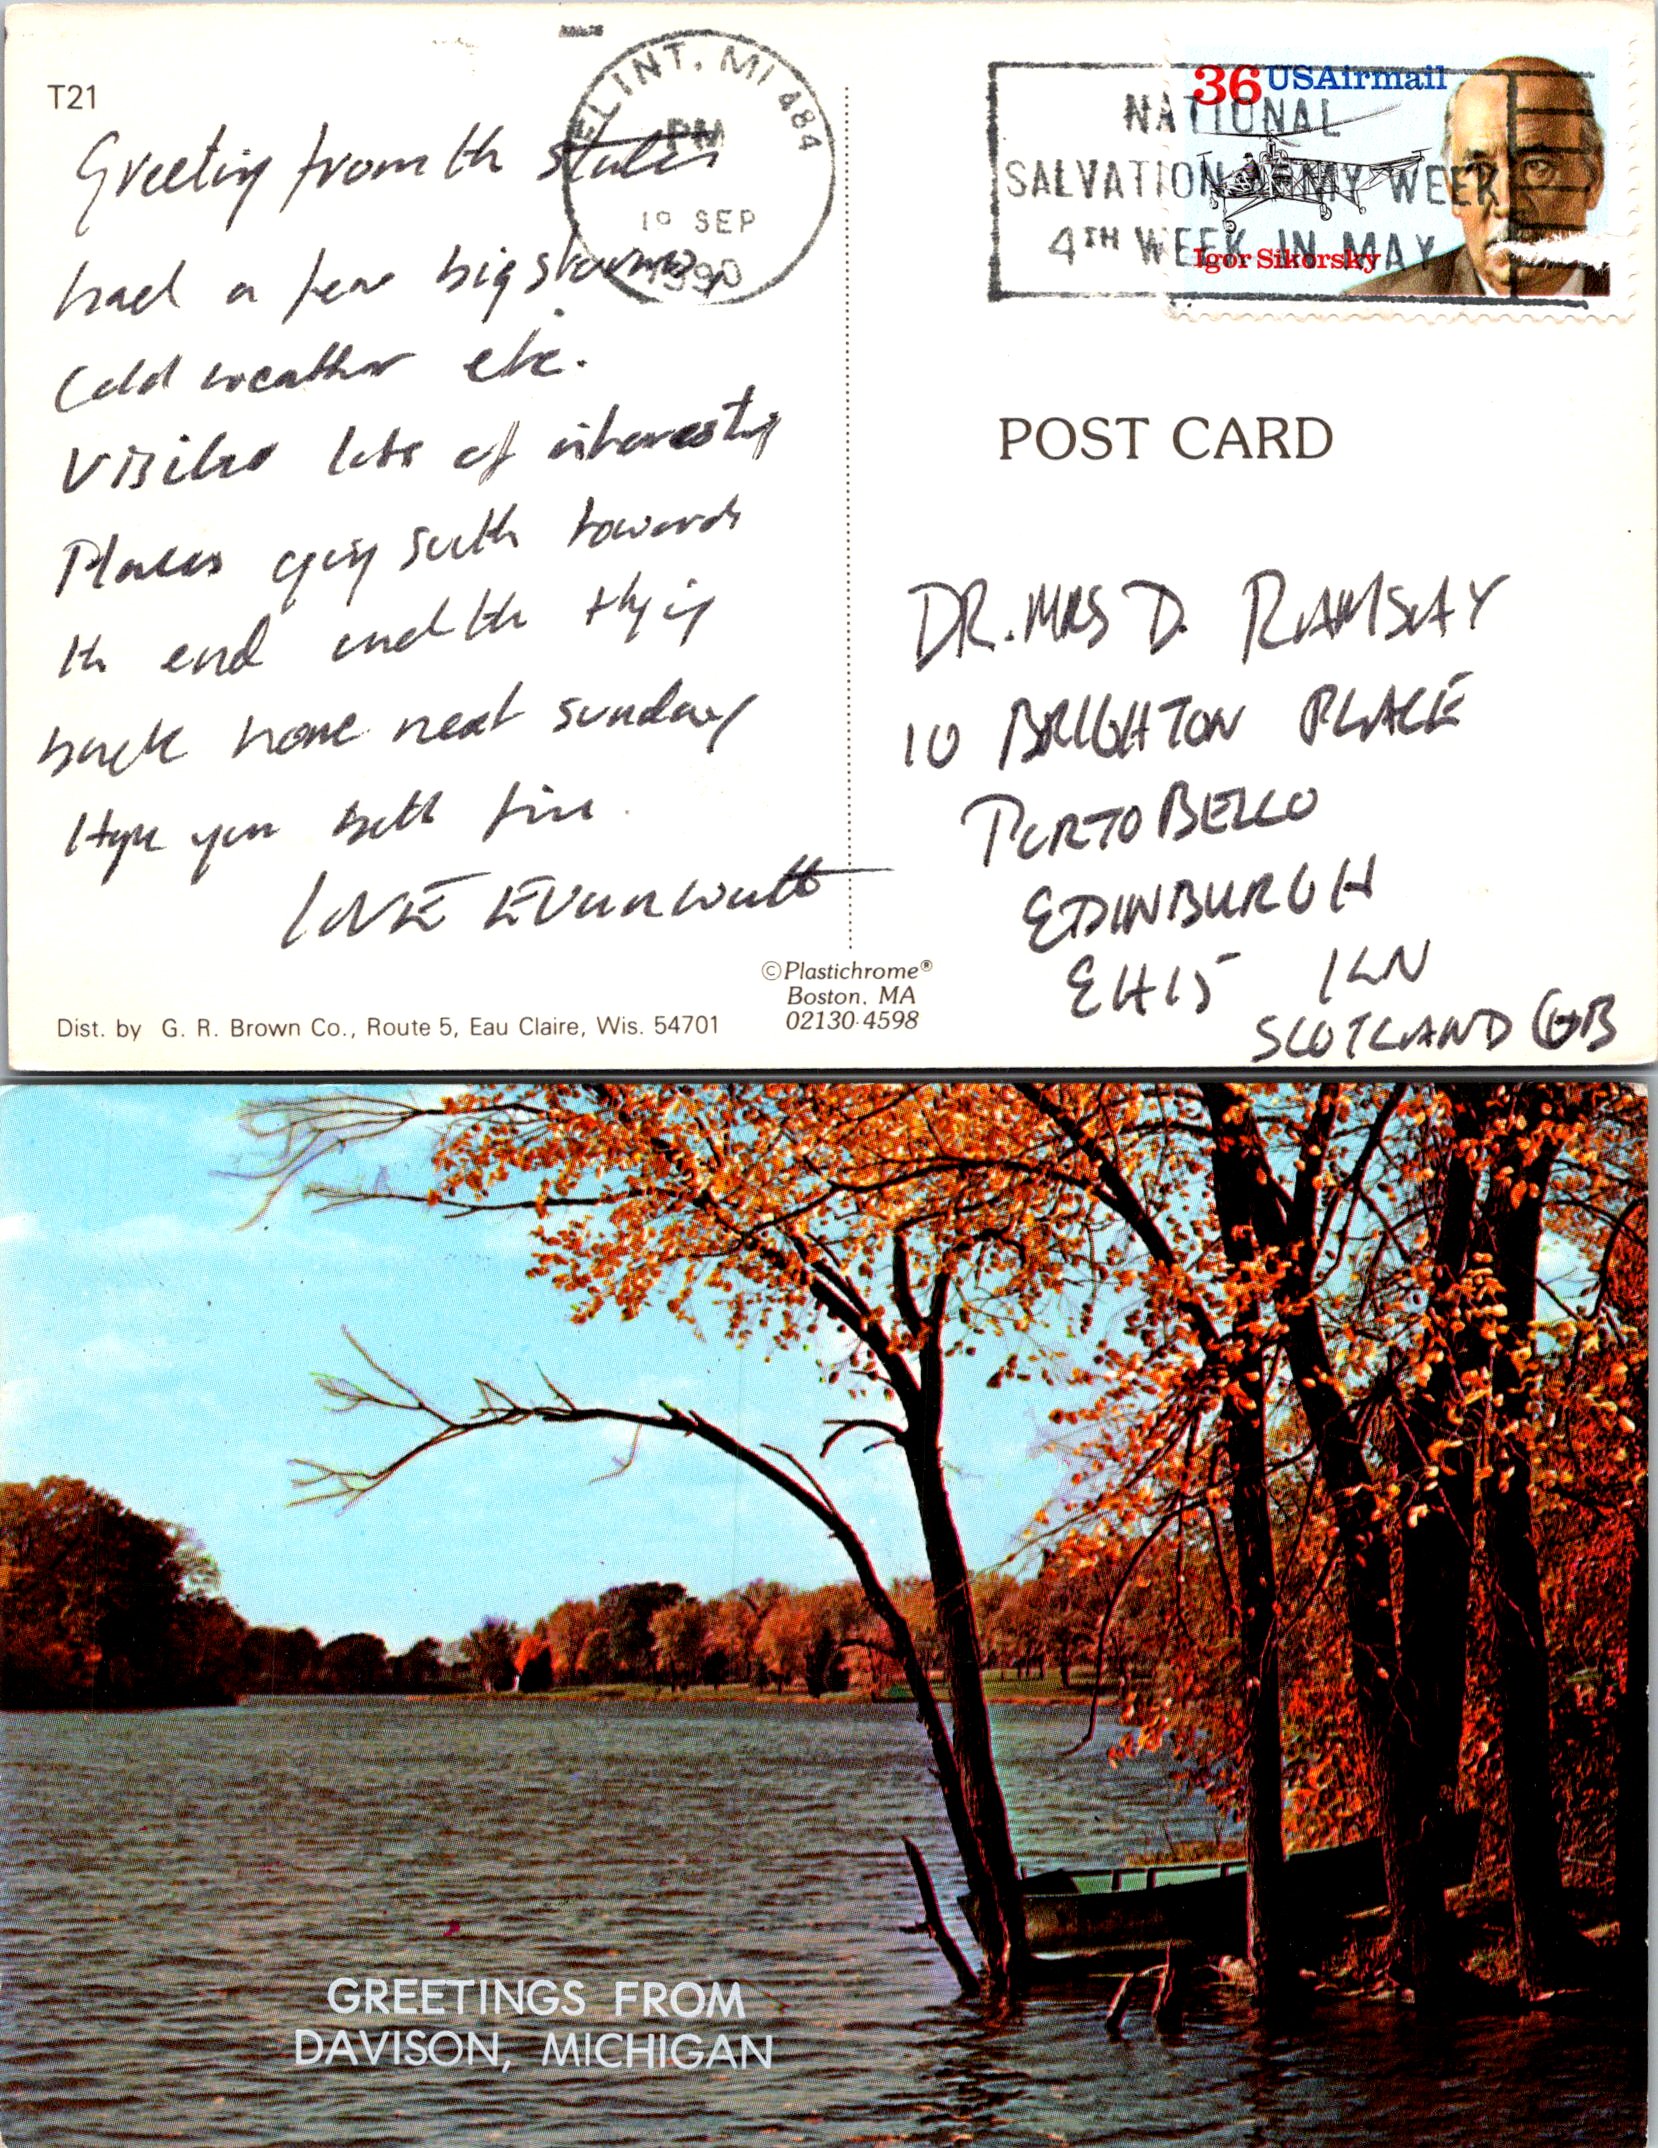 T21
FLINT, MI 484
PM
19 SEP
1990
NATIONAL
SALVATION ARMY WEEK
4TH WEEK IN MAY
36 USAirmail
Igor Sikorsky
Greeting from th states
had a few big storms
Cold weather etc.
Visited lots of interesting
Places going south towards
th end and th flying
back home next sunday
Hope you both fine.
LOVE
POST CARD
DR. MRS D. RAMSAY
10 BRIGHTON PLACE
PORTOBELLO
EDINBURGH
EH15 1LN
SCOTLAND GB
©Plastichrome®
Boston, MA
02130-4598
Dist. by G. R. Brown Co., Route 5, Eau Claire, Wis. 54701
GREETINGS FROM
DAVISON, MICHIGAN